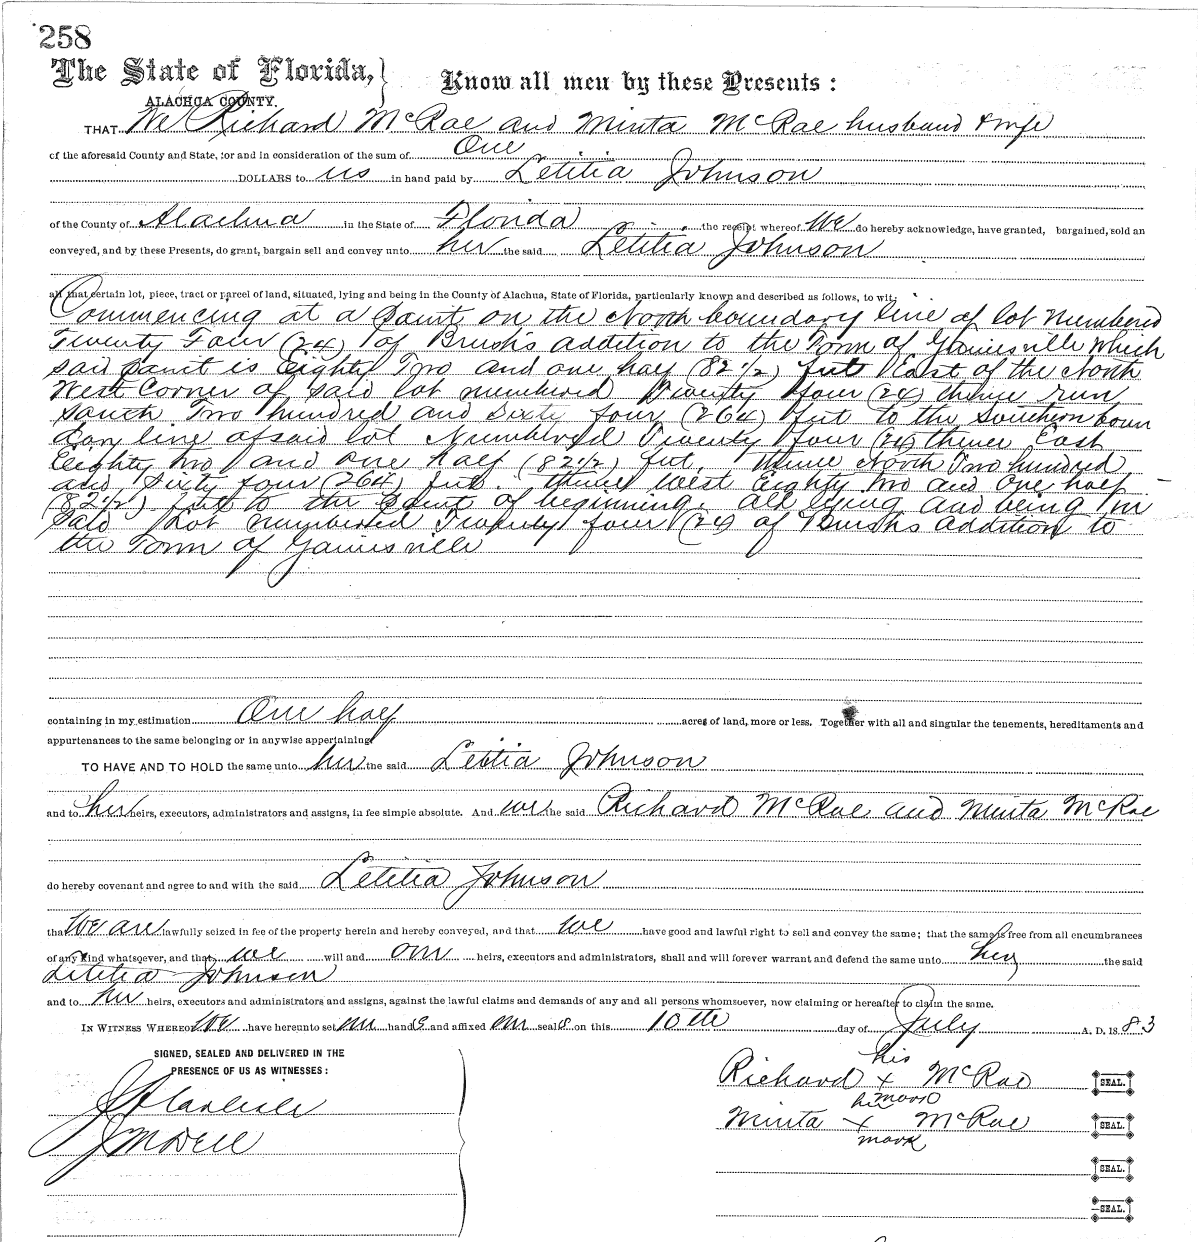 258
The State of Florida,
ALACHUA COUNTY.
Know all men by these Presents:
THAT We Richard McRae and Minta McRae husband & wife
of the aforesaid County and State, for and in consideration of the sum of One
DOLLARS to us in hand paid by Letitia Johnson
of the County of Alachua in the State of Florida the receipt whereof We do hereby acknowledge, have granted, bargained, sold an
conveyed, and by these Presents, do grant, bargain sell and convey unto her the said Letitia Johnson
all that certain lot, piece, tract or parcel of land, situated, lying and being in the County of Alachua, State of Florida, particularly known and described as follows, to wit:
Commencing at a Point on the North boundary line of lot Numbered
Twenty Four (24) of Brush's addition to the Town of Gainesville which
said point is Eighty Two and one half (82 1/2) feet East of the North
West Corner of said lot numbered Twenty four (24) thence run
South Two hundred and Sixty four (264) feet to the Southern boun
dary line of said lot Numbered Twenty four (24) thence East
Eighty two and one half (82 1/2) feet. thence North Two hundred
and Sixty four (264) feet. thence West Eighty Two and One half
(82 1/2) feet to the Point of beginning. all lying and being in
said Lot numbered Twenty four (24) of Brushs addition to
the Town of Gainesville
containing in my estimation One half acres of land, more or less. Together with all and singular the tenements, hereditaments and
appurtenances to the same belonging or in anywise appertaining
TO HAVE AND TO HOLD the same unto her the said Letitia Johnson
and to her heirs, executors, administrators and assigns, in fee simple absolute. And we the said Richard McRae and Minta McRae
do hereby covenant and agree to and with the said Letitia Johnson
that We are lawfully seized in fee of the property herein and hereby conveyed, and that we have good and lawful right to sell and convey the same; that the same is free from all encumbrances
of any kind whatsoever, and that we will and our heirs, executors and administrators, shall and will forever warrant and defend the same unto her the said
Letitia Johnson
and to her heirs, executors and administrators and assigns, against the lawful claims and demands of any and all persons whomsoever, now claiming or hereafter to claim the same.
IN WITNESS WHEREOF We have hereunto set our hands and affixed our seals on this 10th day of July A. D. 1883
SIGNED, SEALED AND DELIVERED IN THE
PRESENCE OF US AS WITNESSES:
his
Richard x McRae SEAL.
mark
J A Carlisle
her
Minta x McRae SEAL.
mark
J M Dell
SEAL.
SEAL.